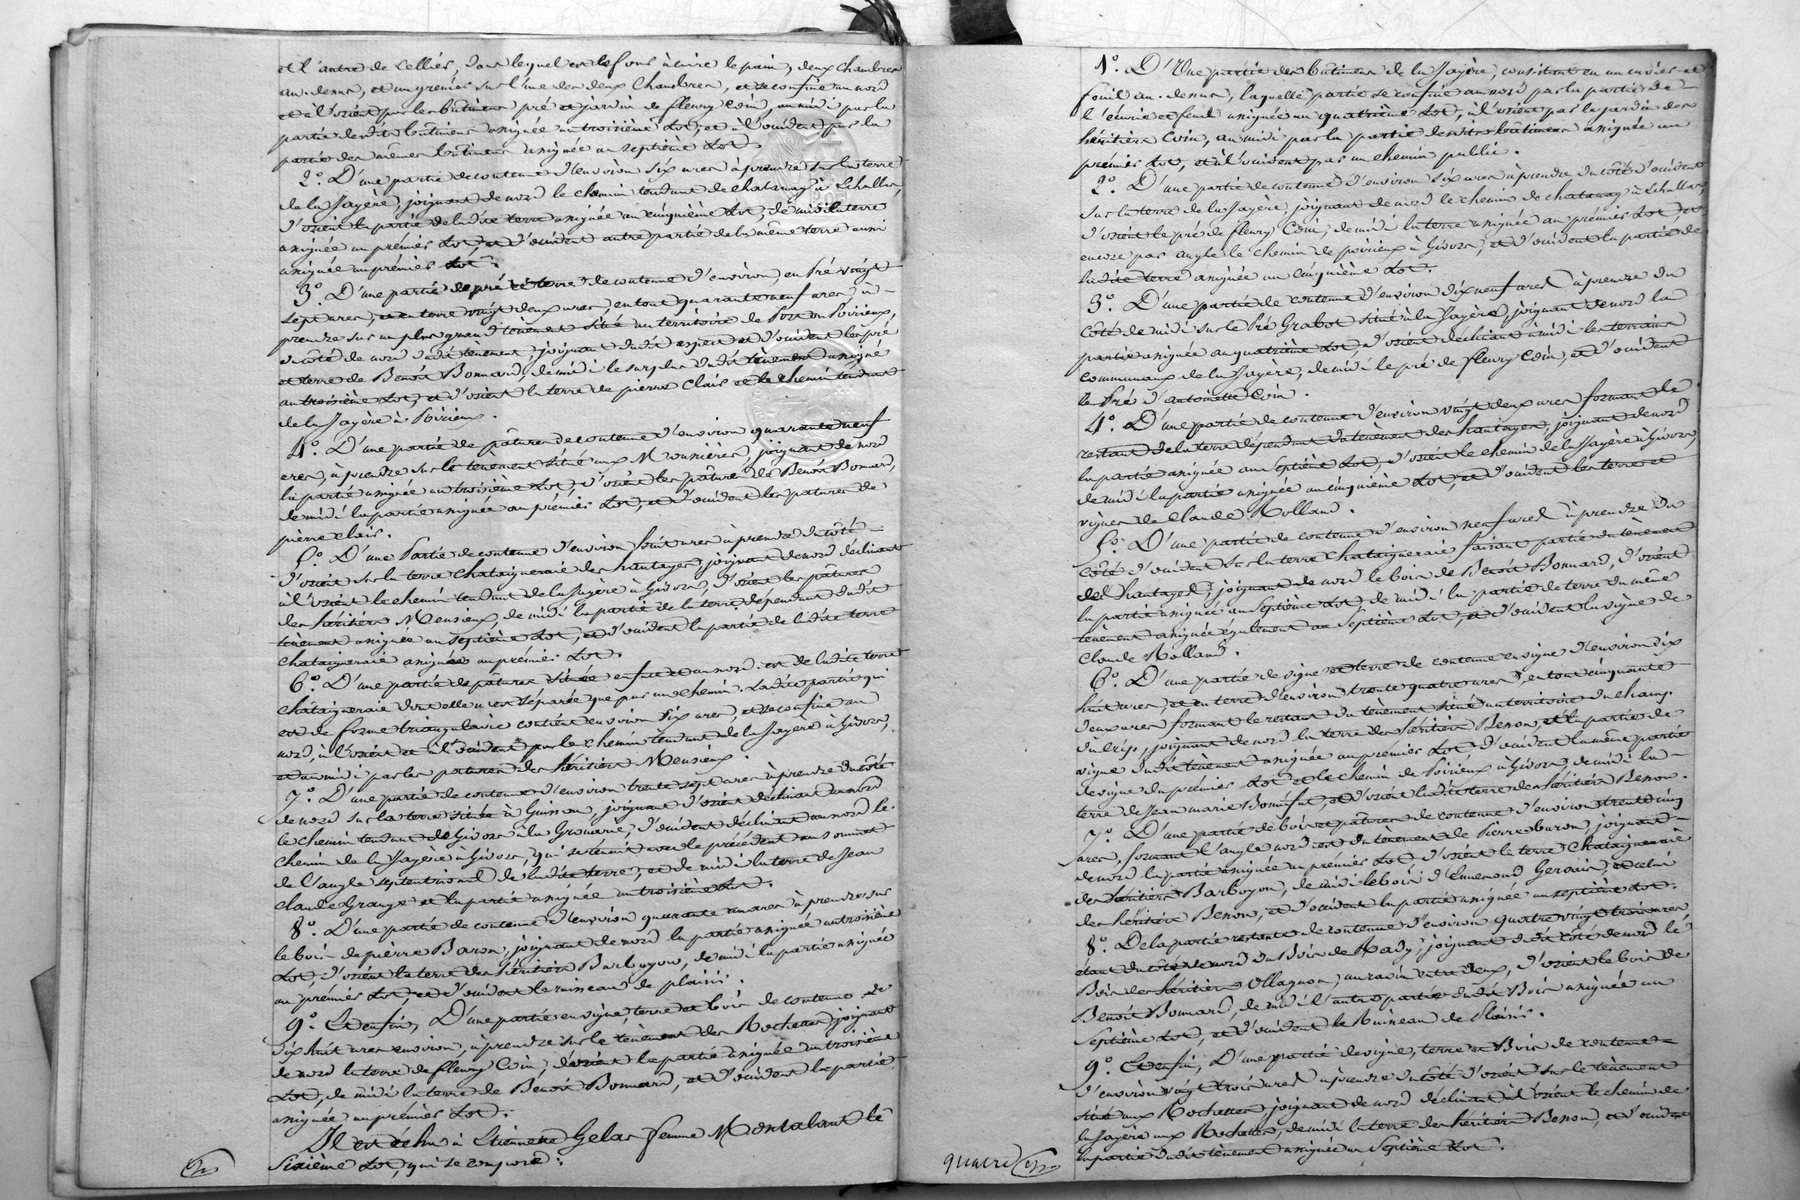 et l'autre de cellier, dans lequel est le four à cuire le pain, deux chambres
au dessus, et un grenier sur l'une des deux chambres, et se confine au nord
et à l'orient par les bâtiments pré et jardin de fleury Coin, au midi par la
partie desdits bâtiments assignée au troisième Lot, et à l'occident par la
partie des mêmes bâtiments assignée au septième Lot.
2°. D'une partie de contenue d'environ six ares à prendre sur la terre
de la Jayère, joignant de nord le chemin tendant de chatanay à Echallas,
d'orient la partie de ladite terre assignée au cinquième Lot, de midi la terre
assignée au premier Lot, et d'occident autre partie de la même terre aussi
assignée au premier Lot.
3°. D'une partie de pré et terre de contenue d'environ, en Pré vingt
sept ares, et en terre vingt deux ares, en tout quarante neuf ares à
prendre sur un plus grand tènement situé au territoire de
du côté de nord dudit tènement, joignant dudit aspect et d'occident les pré
et terre de Benoît Bonnard, de midi le surplus dudit tènement assigné
au troisième Lot, et d'orient la terre de pierre Clair et le chemin tendant
de la Jayère à Poirieux.
4°. D'une partie de pâtures de contenue d'environ quarante neuf
ares, à prendre sur le tènement situé aux Mounières, joignant de nord
la partie assignée au troisième Lot, d'orient les pâtures de Benoît Bonnard,
de midi la partie assignée au premier Lot, et d'occident les patures de
pierre clair.
5°. D'une Partie de contenue d'environ huit ares à prendre du côté
d'orient sur la terre Chataigneraie des hantages, joignant de nord déclinant
à l'orient le chemin tendant de la Jayère à Givors, d'orient les pâtures
des héritiers Monsieux, de midi la partie de la terre dépendant dudit
tènement assignée au septième Lot, et d'occident la partie de ladite terre
Chataigneraie assignée au premier Lot.
6°. D'une partie de pâture située en face et au nord-est de ladite terre
châtaigneraie dont elle n'est séparée que par un chemin. Ladite partie qui
est de forme triangulaire contient environ six ares, et se confine au
nord, à l'orient et à l'occident par le chemin tendant de la Jayère à Givors,
et au midi par les patures des héritiers Monsieux.
7°. D'une partie de contenue d'environ trente sept ares à prendre du côté
de nord sur la terre située à Guisson, joignant d'orient déclinant au nord
le chemin tendant de Givors à la Gronarie, d'occident déclinant au nord le
chemin de la Jayère à Givors, qui se réunit avec le précédent au sommet
de l'angle septentrional de ladite terre, et de midi la terre de Jean
Claude Grange et la partie assignée au troisième Lot.
8°. D'une partie de contenue d'environ quarante un ares à prendre sur
le bois de pierre Baron, joignant de nord la partie assignée au troisième
Lot, d'orient la terre des héritiers Barboyon, de midi la partie assignée
au premier Lot, et d'occident le ruisseau de plaisir.
9°. Et enfin, D'une partie en vigne, terre et bois de contenue de
dix huit ares environ, à prendre sur le tènement des Rochettes joignant
de nord la terre de fleury Coin, d'orient la partie assignée au troisième
Lot, de midi la terre de Benoît Bonnard, et d'occident la partie
assignée au premier Lot.
Il est échu à Etiennette Gelas femme Montabout le
Sixième Lot, qui se compose:
1°. D'Une partie des bâtiments de la Jayère, consistant en un cuvier et
fenil au-dessus, laquelle partie se confine au nord par la partie de
l'écurie et fenil assignée au quatrième Lot, à l'orient par le jardin des
héritiers Coin, au midi par la partie desdits bâtiments assignée au
premier Lot, et à l'occident par un chemin public.
2°. D'une partie de contenue d'environ six ares à prendre du côté d'occident
sur la terre de la Jayère, joignant de nord le chemin de chatanay à Echallas,
d'orient le pré de fleury Coin, de midi la terre assignée au premier Lot, et
encore par angle le chemin de poirieux à Givors, et d'occident la partie de
ladite terre assignée au cinquième Lot.
3°. D'une partie de contenue d'environ dix neuf ares à prendre du
côté de midi sur le Pré Grabot situé à la Jayère, joignant de nord la
partie assignée au quatrième Lot, d'orient déclinant à midi les terrains
communaux de la Jayère, de midi le pré de fleury Coin, et d'occident
le Pré d'antoinette Coin.
4°. D'une partie de contenue d'environ vingt deux ares formant le
restant de la terre dépendant du tènement des hantages, joignant de nord
la partie assignée au Septième Lot, d'orient le chemin de la Jayère à Givors,
de midi la partie assignée au cinquième Lot, et d'occident les terre et
vignes de Claude Rolland.
5°. D'une partie de contenue d'environ neuf ares à prendre du
côté d'occident sur la terre Chataigneraie faisant partie du tènement
des hantages, joignant de nord le bois de Benoît Bonnard, d'orient
la partie assignée au Septième Lot, de midi la partie de terre du même
tènement assignée également au Septième Lot, et d'occident la vigne de
Claude Rolland.
6°. D'une partie de vigne et terre de contenue en vigne d'environ dix
huit ares, et en terre d'environ trente quatre ares, en tout cinquante
deux ares formant le restant du tènement situé au territoire du champ
du loup, joignant de nord la terre des héritiers Benon, et la partie de
vigne dudit tènement assignée au premier Lot, d'occident la même partie
de vigne du premier Lot et le chemin de Poirieux à Givors, de midi la
terre de Jean marie Bonnefut, et d'orient ladite terre des héritiers Benon.
7°. D'une partie de bois et pâtures de contenue d'environ trente cinq
ares, formant l'angle nord est du tènement de Pierre baron, joignant
de nord la partie assignée au premier Lot, d'orient la terre Chataigneraie
des héritiers Barboyon, de midi le bois d'Ennemond Gervais, et celui
des héritiers Benon, et d'occident la partie assignée au septième Lot.
8°. De la partie restante de contenue d'environ quatre vingt trois ares
étant du côté de nord du Bois de Mady, joignant dudit côté de nord le
Bois des héritiers Ollagnon, un ravin entre deux, d'orient le bois de
Benoît Bonnard, de midi l'autre partie dudit Bois assignée au
Septième Lot, et d'occident le Ruisseau de Plaisir.
9°. Et enfin, D'une partie de vigne, terre et Bois de contenue
d'environ vingt trois ares à prendre du côté d'orient sur le tènement
situé aux Rochettes joignant de nord déclinant à l'orient le chemin de
la Jayère aux Rochettes, de midi la terre des héritiers Benon, et d'occident
la partie dudit tènement assignée au Septième Lot.
quatre